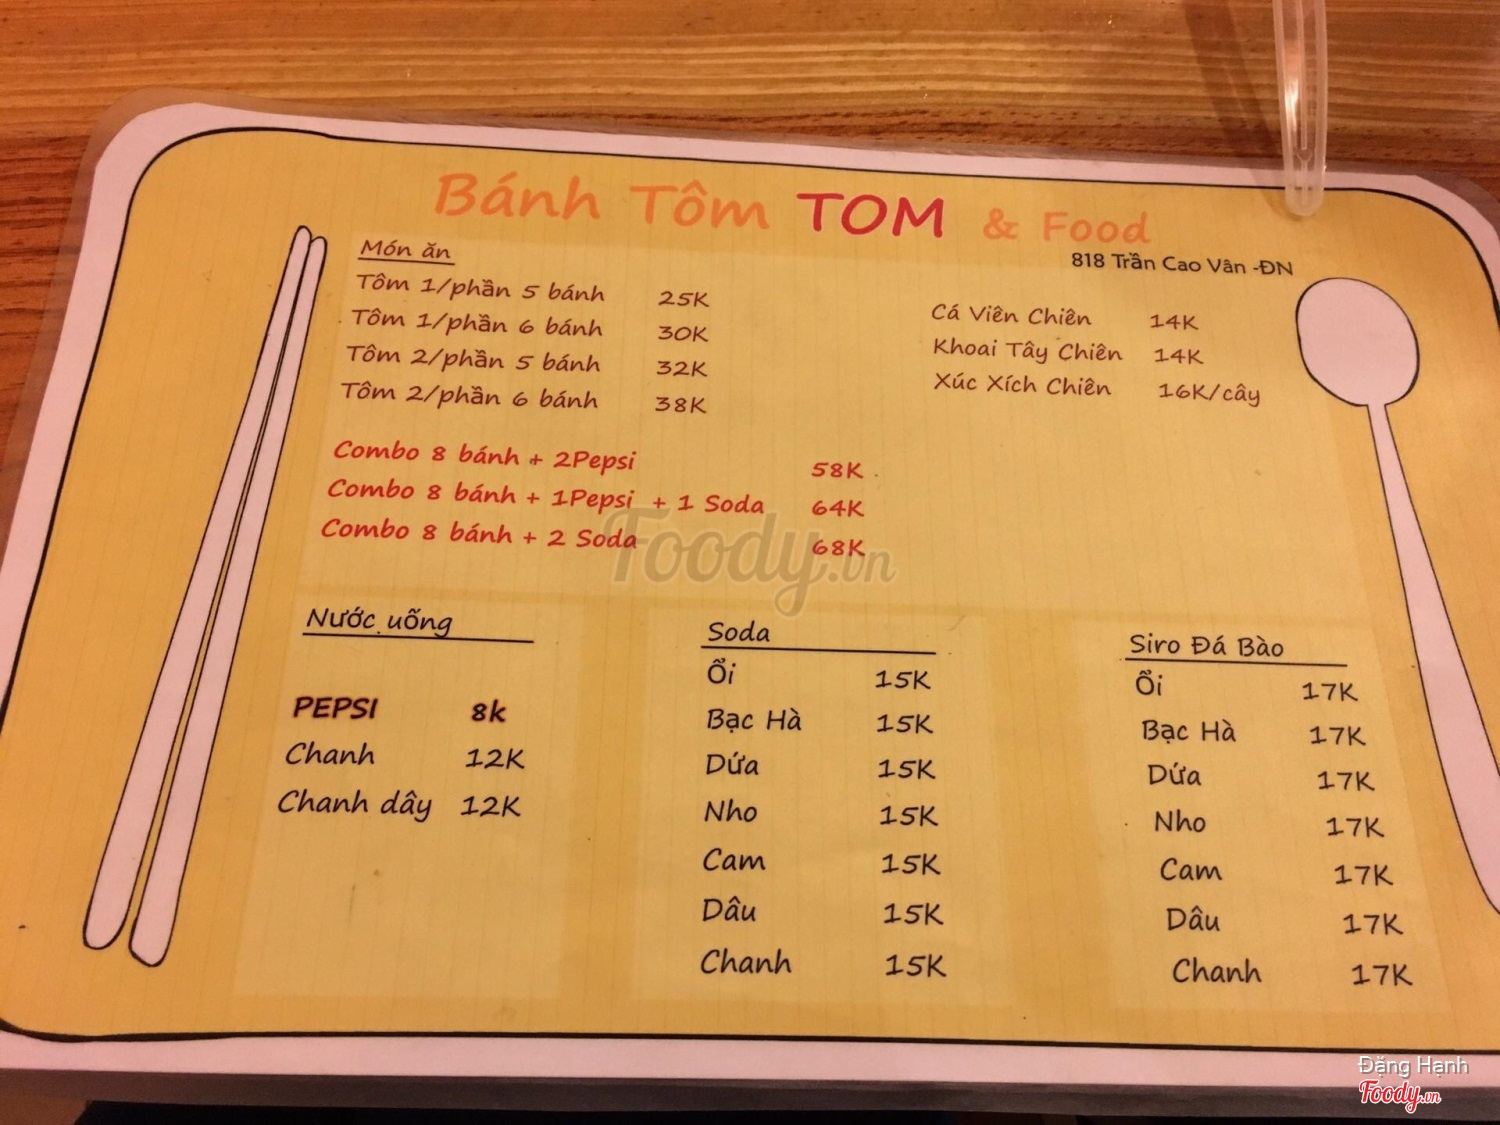 Bánh Tôm TOM & Food
818 Trần Cao Vân -ĐN
Món ăn
Tôm 1/phần 5 bánh 25K
Tôm 1/phần 6 bánh 30K
Tôm 2/phần 5 bánh 32K
Tôm 2/phần 6 bánh 38K
Cá Viên Chiên 14K
Khoai Tây Chiên 14K
Xúc Xích Chiên 16K/cây
Combo 8 bánh + 2Pepsi 58K
Combo 8 bánh + 1Pepsi + 1 Soda 64K
Combo 8 bánh + 2 Soda 68K
Foody.vn
Nước uống
PEPSI 8k
Chanh 12K
Chanh dây 12K
Soda
Ổi 15K
Bạc Hà 15K
Dứa 15K
Nho 15K
Cam 15K
Dâu 15K
Chanh 15K
Siro Đá Bào
Ổi 17K
Bạc Hà 17K
Dứa 17K
Nho 17K
Cam 17K
Dâu 17K
Chanh 17K
Đặng Hạnh
Foody.vn